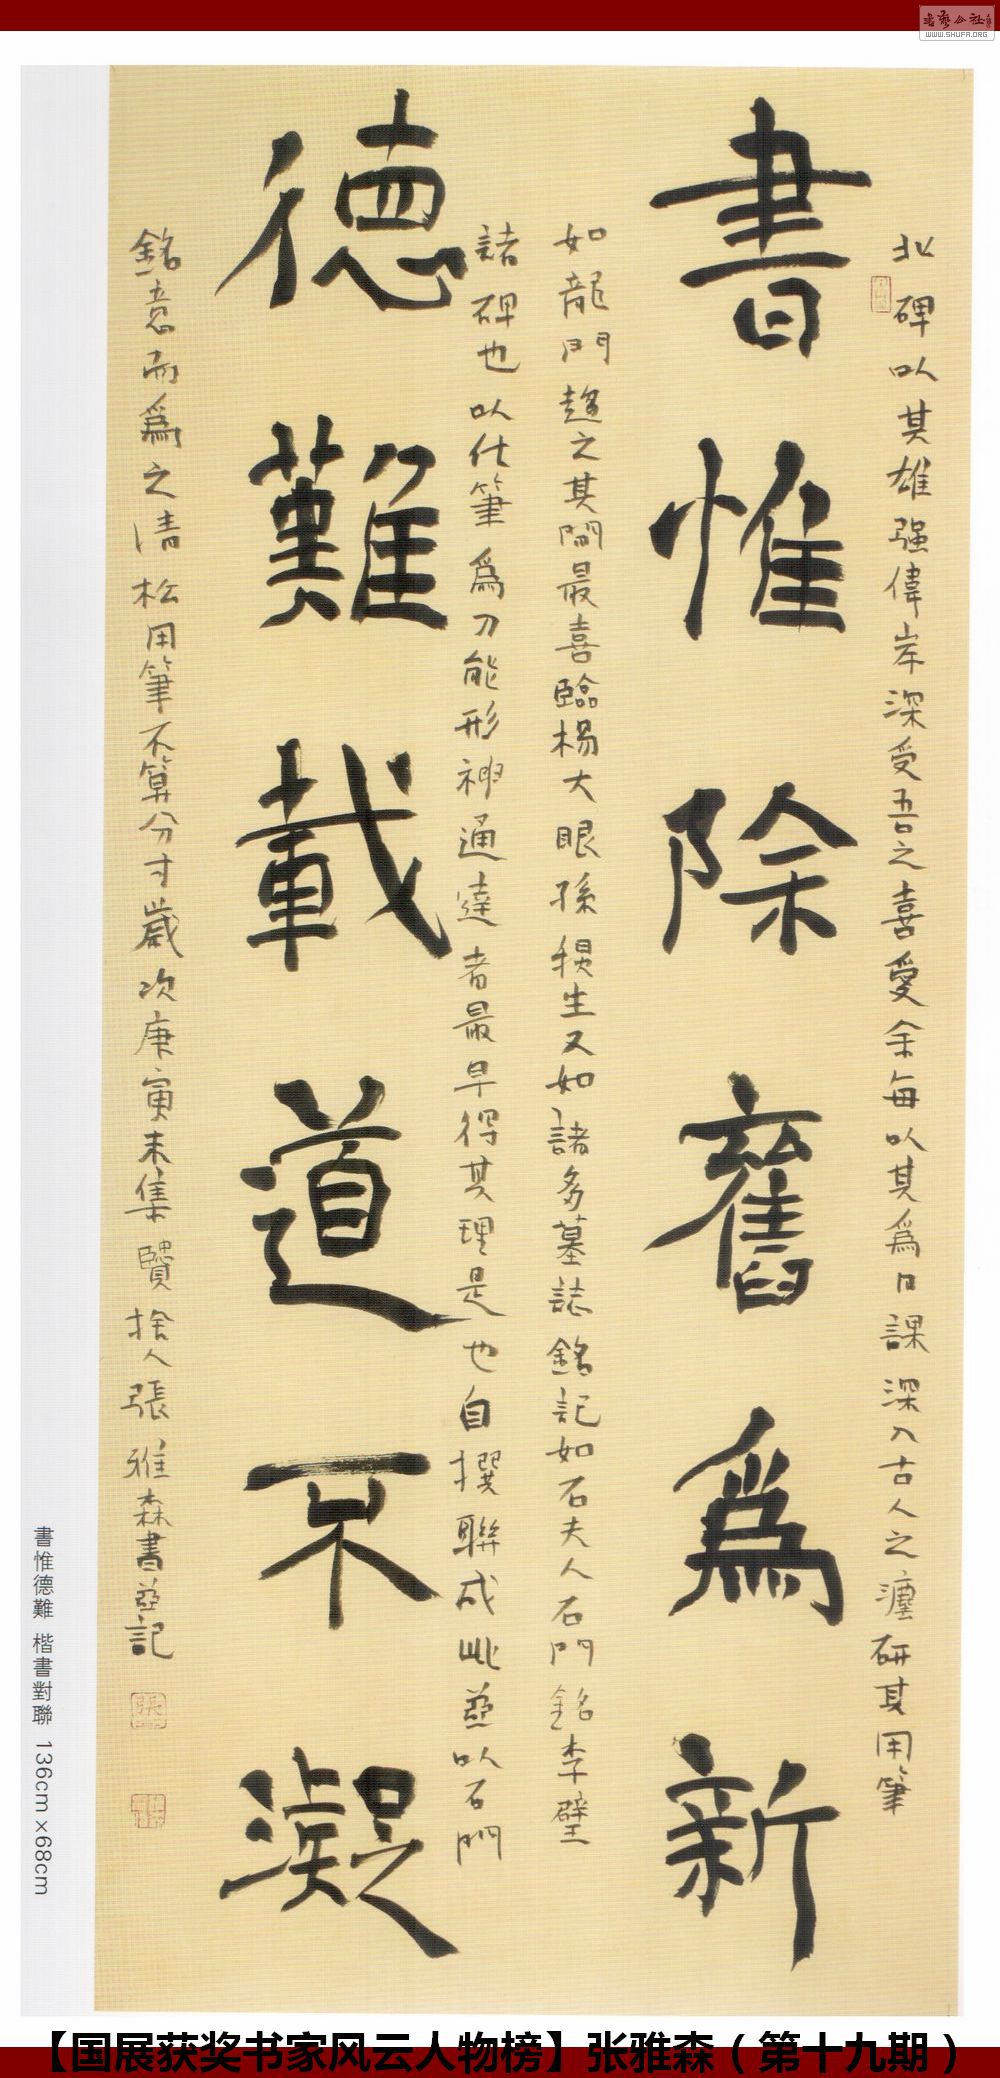 書藝公社
WWW.SHUFA.ORG
北碑以其雄强偉岸深受吾之喜愛余每以其爲日課深入古人之㕓研其用筆
書惟除舊爲新
如龍門趨之其間最喜臨楊大眼孫秋生又如諸多墓誌銘記如石夫人石門銘李璧
諸碑也以仕筆爲刀能形神通達者最早得其理是也自撰聯成此並以石門
德難載道不凝
銘意而爲之清松用筆不算分寸歲次庚寅末集賢捨人張雅森書並記
書惟德難 楷書對聯 136cm×68cm
【国展获奖书家风云人物榜】张雅森（第十九期）